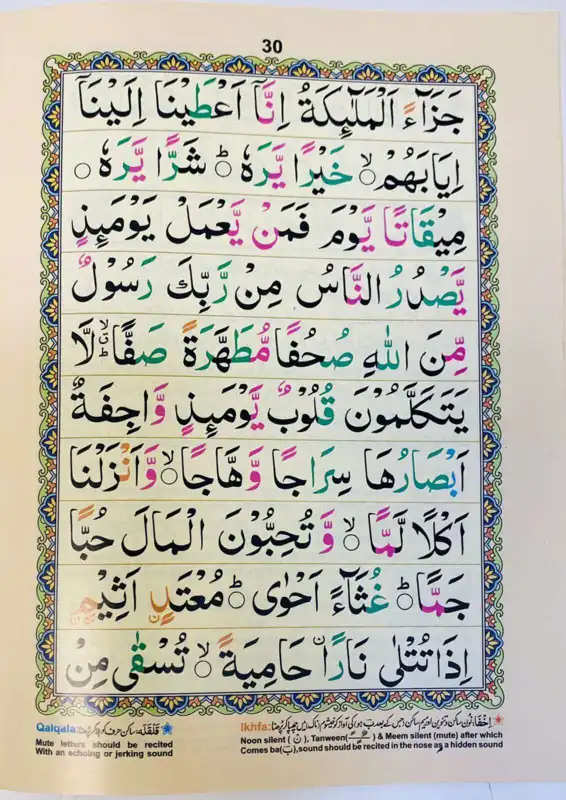 30
جَزَآءً اَلْمَلٰٓئِكَةُ اِنَّآ اَعْطَيْنَا اِلَيْنَآ
اِيَابَهُمْ ۙ خَيْرًا يَّرَهٗ ؕ شَرًّا يَّرَهٗ ۟
مِيْقَاتًا يَّوْمَ فَمَنْ يَّعْمَلْ يَوْمَئِذٍ
يَّصْدُرُ النَّاسُ مِنْ رَّبِّكَ رَسُوْلٌ
مِّنَ اللّٰهِ صُحُفًا مُّطَهَّرَةً صَفًّا لَّا
يَتَكَلَّمُوْنَ قُلُوْبٌ يَّوْمَئِذٍ وَّاجِفَةٌ
اَبْصَارُهَا سِرَاجًا وَّهَّاجًا ۙ وَّاَنْزَلْنَا
اَكْلًا لَّمًّا ۙ وَّ تُحِبُّوْنَ الْمَالَ حُبًّا
جَمًّا ؕ غُثَآءً اَحْوٰى ؕ مُعْتَدٍ اَثِيْمٍ
اِذَا تُتْلٰى نَارًا حَامِيَةً ۙ تُسْقٰى مِنْ
Qalqala: قَلْقَلَه:
Mute letters should be recited
With an echoing or jerking sound
Ikhfa: اِخْفَا:
Noon silent (نْ), Tanween & Meem silent (mute) after which
Comes ba(ب), sound should be recited in the nose as a hidden sound